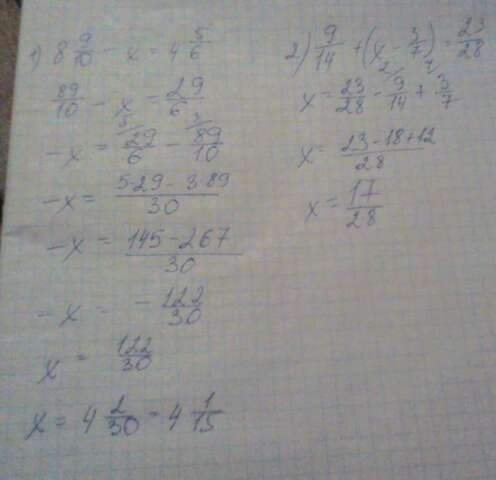 1) 8 9/10 - x = 4 5/6
89/10 - x = 29/6
-x = 5/ 29/6 - 3/ 89/10
-x = 5·29 - 3·89/30
-x = 145-267/30
-x = - 122/30
x = 122/30
x = 4 2/30 = 4 1/15
2) 9/14 + (x - 3/7) = 23/28
x = 23/28 - 2/ 9/14 + 4/ 3/7
x = 23-18+12/28
x = 17/28